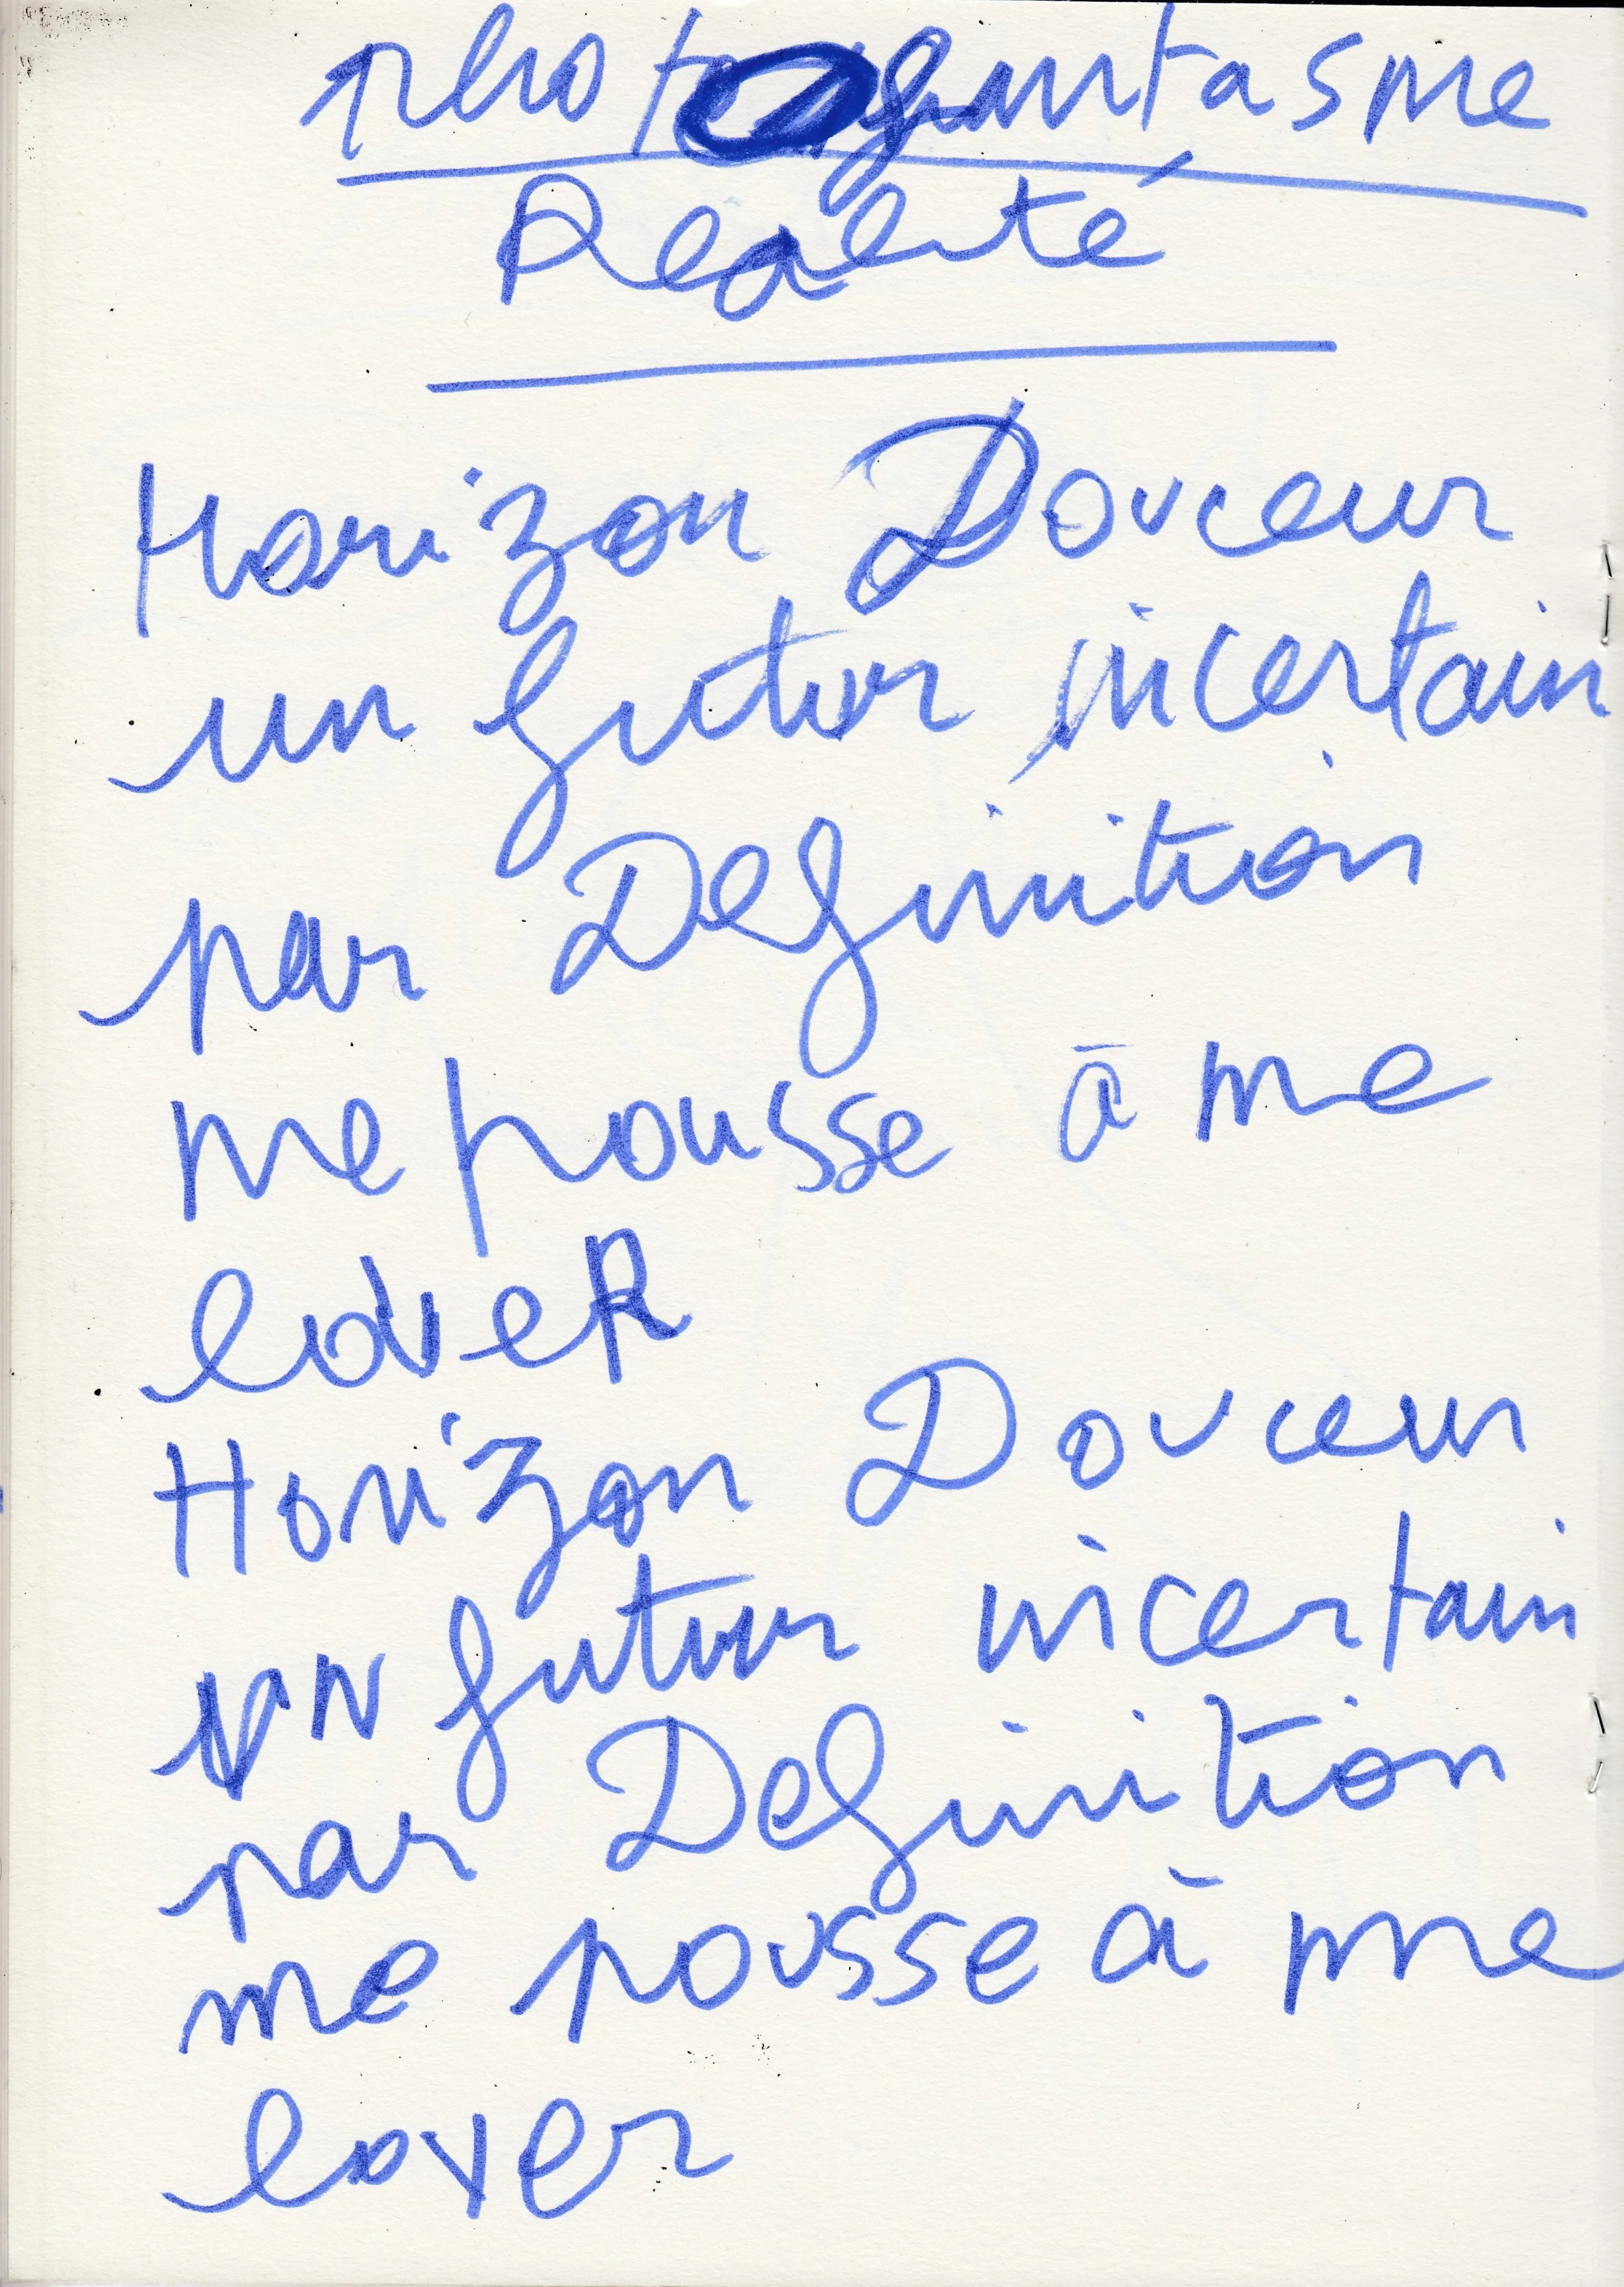 Photo fantasme
Realité
Horizon Douceur
un futur incertain
par Definition
me pousse à me
loveR
Horizon Douceur
uN futur incertain
par Definition
me pousse à me
lover